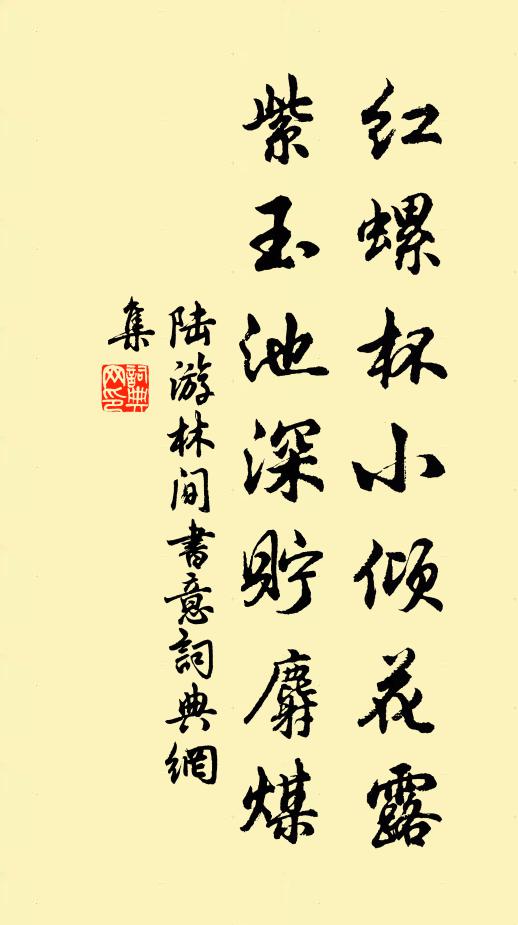 红螺杯小倾花露
紫玉池深贮麝煤
陆游林间书意詞典網
集
詞典
网印